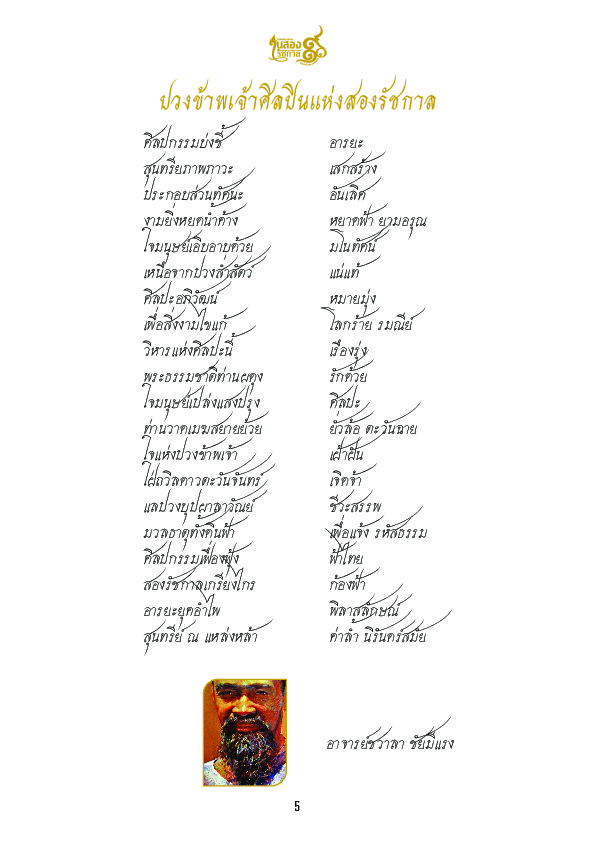 ในสอง
รัชกาล
ปวงข้าพเจ้าศิลปินแห่งสองรัชกาล
ศิลปกรรมบ่งชี้ อารยะ
สุนทรียภาพภาวะ เสกสร้าง
ประกอบส่วนทัศนะ อันเลิศ
งามยิ่งหยดน้ำค้าง หยาดฟ้า ยามอรุณ
ใจมนุษย์เอิบอาบด้วย มโนทัศน์
เหนือจากปวงส่ำสัตว์ แน่แท้
ศิลปะอภิวัฒน์ หมายมุ่ง
เพื่อสิ่งงามไขแก้ โลกร้าย รมณีย์
วิหารแห่งศิลปะนี้ เรืองรุ่ง
พระธรรมชาติท่านผดุง รักด้วย
ใจมนุษย์เปล่งแสงปรุง ศิลปะ
ท่านวาดเมฆสยายย้วย ยั่วล้อ ตะวันฉาย
ใจแห่งปวงข้าพเจ้า เฝ้าฝัน
ใฝ่ถวิลดาวตะวันจันทร์ เจิดจ้า
แลปวงบุปผาลาวัณย์ ชีวะสรรพ
มวลธาตุทั้งดินฟ้า เพื่อแจ้ง รหัสธรรม
ศิลปกรรมเฟื่องฟุ้ง ฟ้าไทย
สองรัชกาลเกรียงไกร ก้องฟ้า
อารยะยุคอำไพ พิลาสลักษณ์
สุนทรีย์ ณ แหล่งหล้า ค่าล้ำ นิรันดร์สมัย
อาจารย์ชวาลา ชัยมีแรง
5